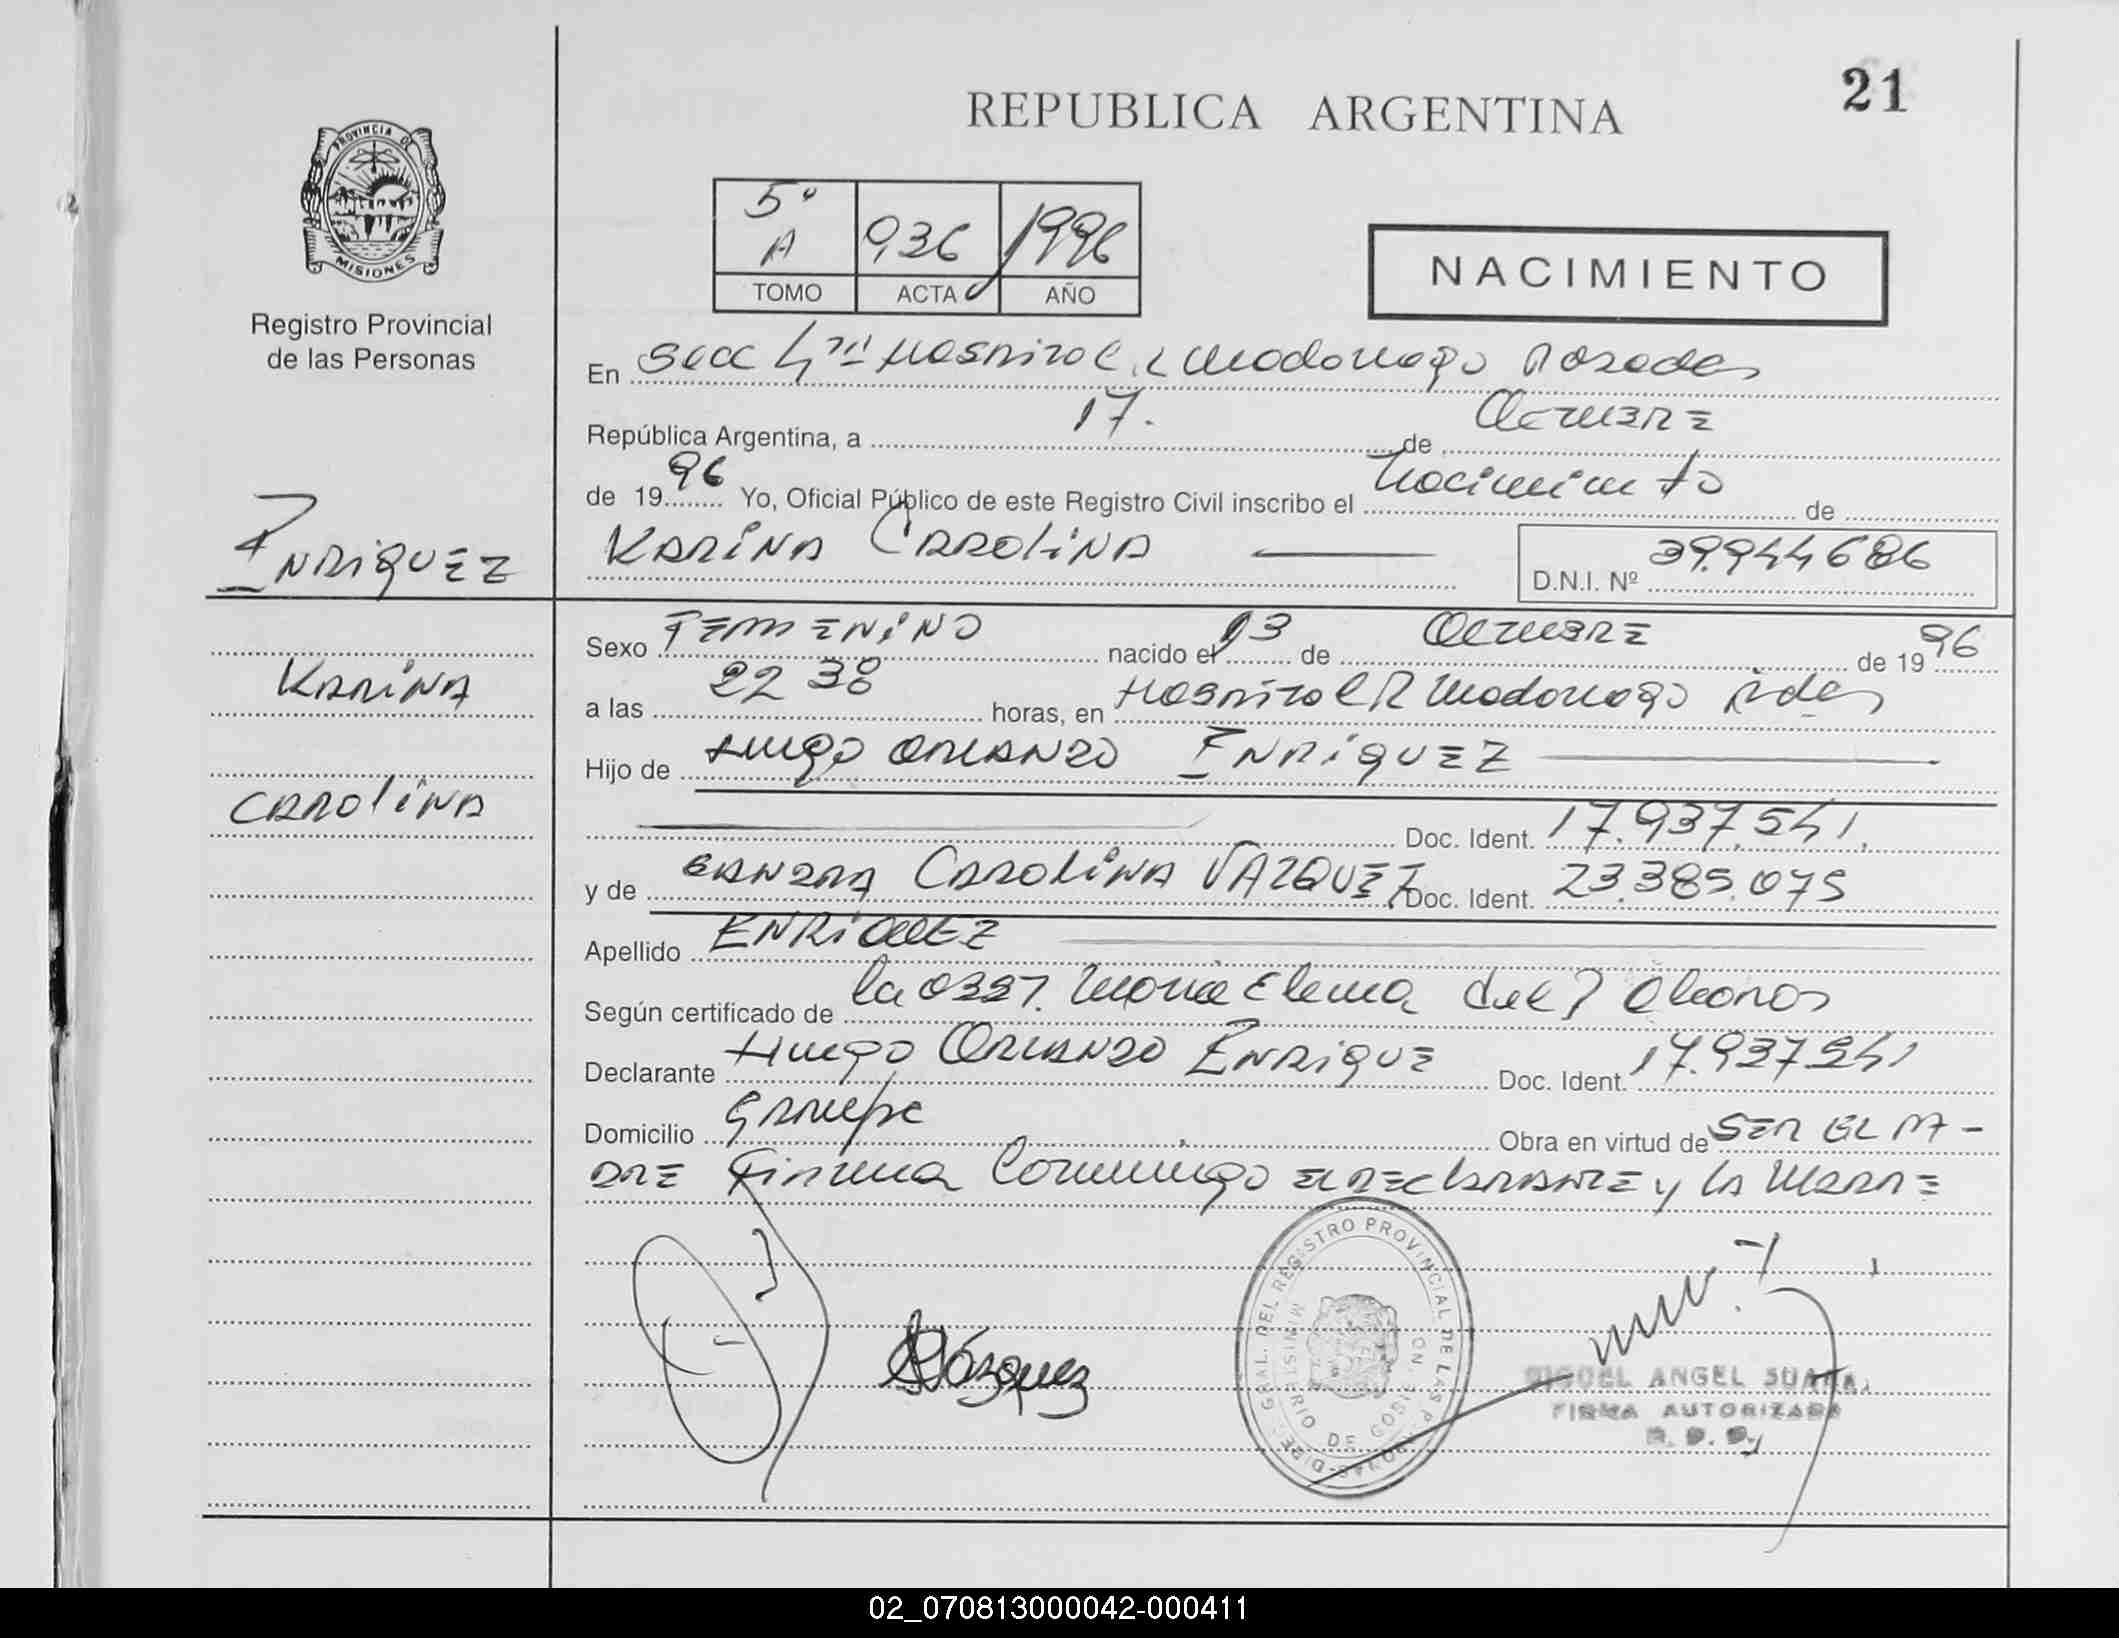 21
REPUBLICA ARGENTINA
PROVINCIA DE
MISIONES
Registro Provincial
de las Personas
5º
A 936 1996
TOMO ACTA AÑO
NACIMIENTO
En Secc 4ta Hospital R Madariaga Posadas
República Argentina, a 17. de Octubre
de 1996 Yo, Oficial Público de este Registro Civil inscribo el Nacimiento de
ENRIQUEZ
KARINA CAROLINA
D.N.I. Nº 39.944686
KARINA
CAROLINA
Sexo FEMENINO nacido el 13 de Octubre de 1996
a las 22 38 horas, en Hospital R Madariaga Pdas
Hijo de Hugo ORLANDO ENRIQUEZ
Doc. Ident. 17.937.541.
y de SANDRA CAROLINA VAZQUEZ Doc. Ident. 23.385.075
Apellido ENRIQUEZ
Según certificado de la Obst. Maria Elena del
Declarante Hugo ORLANDO ENRIQUE Doc. Ident. 17.937.541
Domicilio Garupa Obra en virtud de SER EL PA-
DRE Firma Conmigo EL DECLARANTE y LA MADRE
Vázquez
DIREC. GRAL. DEL REGISTRO PROVINCIAL DE LAS PERSONAS
MINISTERIO DE GOBIERNO
MIGUEL ANGEL
FIRMA AUTORIZADA
02_070813000042-000411